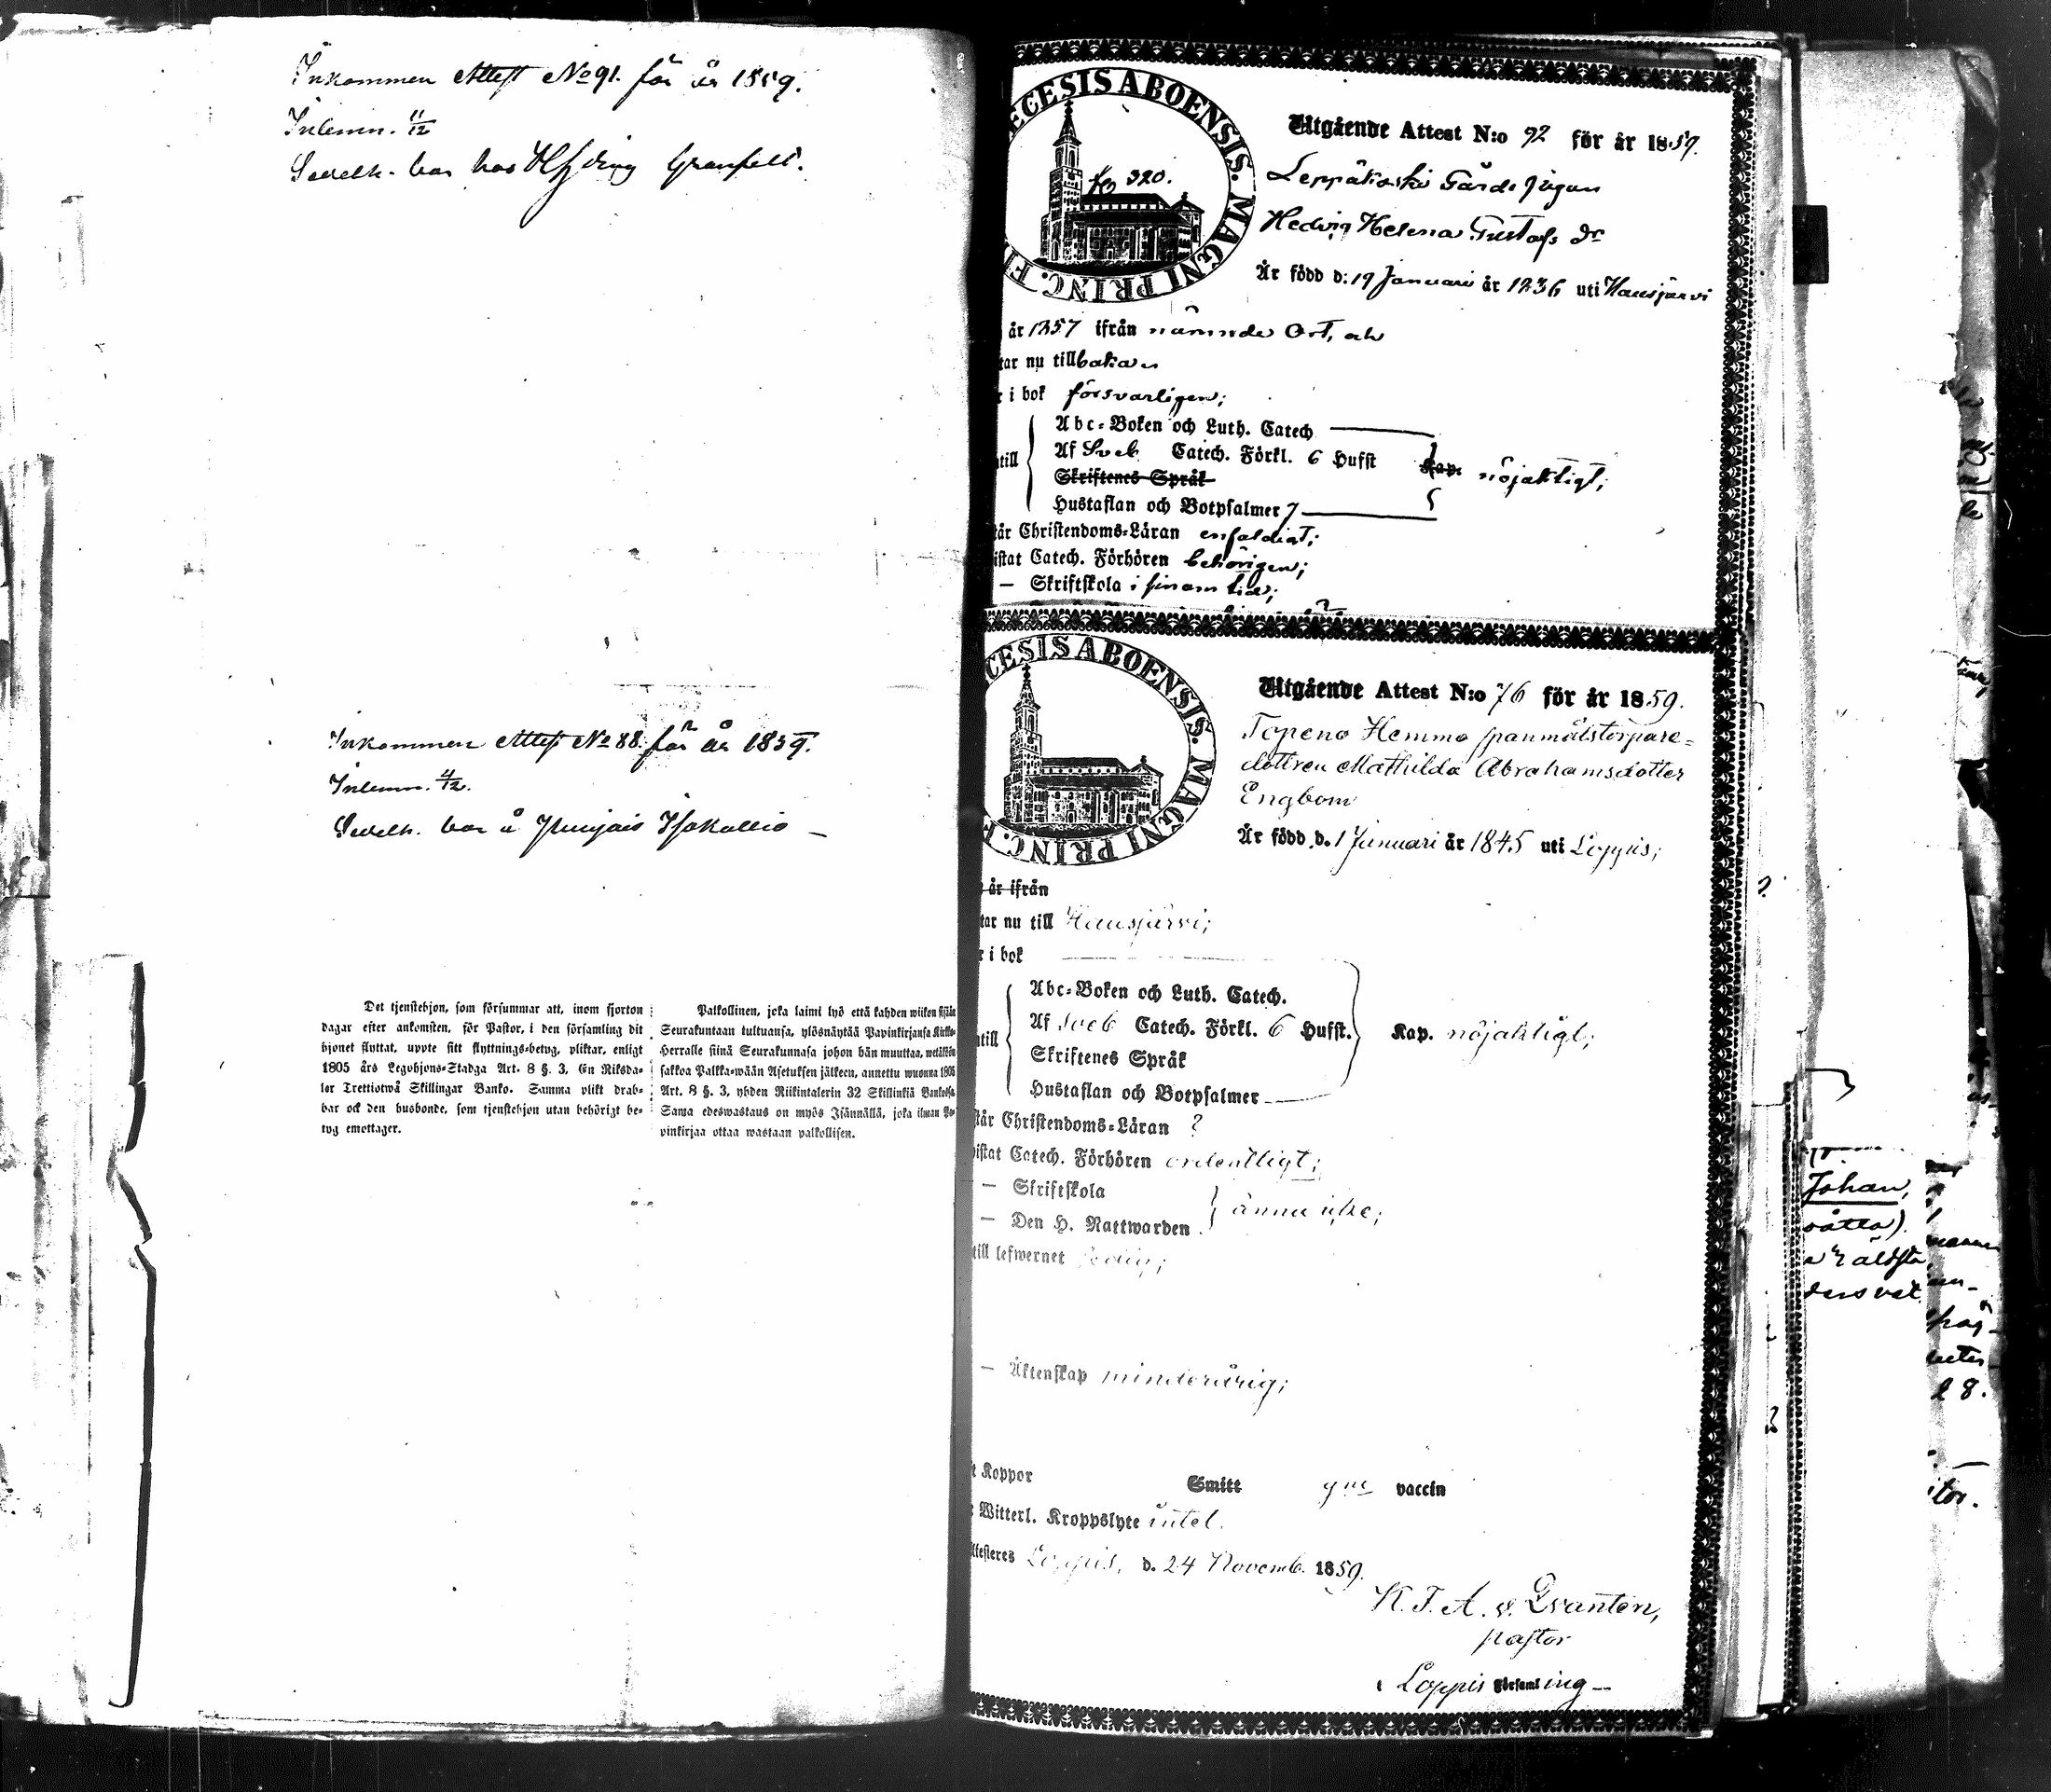 Inkommen Attest No 91. för år 1859.
Inlemn. 11/12
Sedelh. bor hos
Inkommen Attest No 88. för år 1859.
Inlemn. 4/12.
Sedelh. bor å
Det tjenstehjon, som försummar att, inom fjorton
dagar efter ankomsten, för Pastor, i den församling dit
hjonet flyttat, uppte sitt flyttnings-betyg, pliktar, enligt
1805 års Legohjons-Stadga Art. 8 §. 3, En Riksda-
ler Trettiotwå Skillingar Banko. Samma plikt drab-
bar ock den husbonde, som tjenstehjon utan behörigt be-
tyg emottager.
Palkollinen, joka laimi lyö että kahden wiikon sisäl
Seurakuntaan tultuansa, ylösnäytää Papinkirjansa Kirkko-
Herralle siinä Seurakunnasa johon hän muuttaa, wetäkön
sakkoa Palkka-wään Asetuksen jälkeen, annettu wuonna 1805
Art. 8 §. 3, yhden Riikintalerin 32 Skillinkiä Bankosa.
Sama edeswastaus on myös Isännällä, joka ilman Pa-
pinkirjaa ottaa wastaan palkollisen.
ECESIS ABOENSIS. MAGNI PRINC. FI
fo 320.
Utgående Attest N:o 92 för år 1859.
Leppäkoski Gårds pigan
Hedvig Helena Gustafs dr
Är född d: 19 Januari år 1836 uti Hausjärvi
år 1857 ifrån nämnde Ort, och
tar nu tillbaka
r i bok försvarligen;
Abc-Boken och Luth. Catech
ntill Af Sveb Catech. Förkl. 6 Hufst Kap. nöjaktigt;
Skriftenes Språk
Hustaflan och Botpsalmer 7
står Christendoms-Läran enfaldigt;
istat Catech. Förhören behörigen;
— Skriftskola i sinom tid;
CESIS ABOENSIS. MAGNI PRINC. F
Utgående Attest N:o 76 för år 1859.
Topeno Hemmo spanmålstorpare-
dottren Mathilda Abrahamsdotter
Engbom
Är född d. 1 Januari år 1845 uti Loppis;
år ifrån
tar nu till Hausjärvi;
r i bok
Abc-Boken och Luth. Catech.
ntill Af Sveb Catech. Förkl. 6 Hufst. Kap. nöjaktigt;
Skriftenes Språk
Hustaflan och Botpsalmer
står Christendoms-Läran ?
istat Catech. Förhören ordentligt;
— Skriftskola
— Den H. Nattwarden ännu icke;
till lefwernet ledig;
— Äktenskap minderårig;
t Koppor Smitt gm vaccin
Witterl. Kroppslyte intet.
ttesteres Loppis, d. 24 Novemb. 1859.
K. J. A. v. Qvanten,
pastor
Loppis Församling
Johan,
äldsta
28.